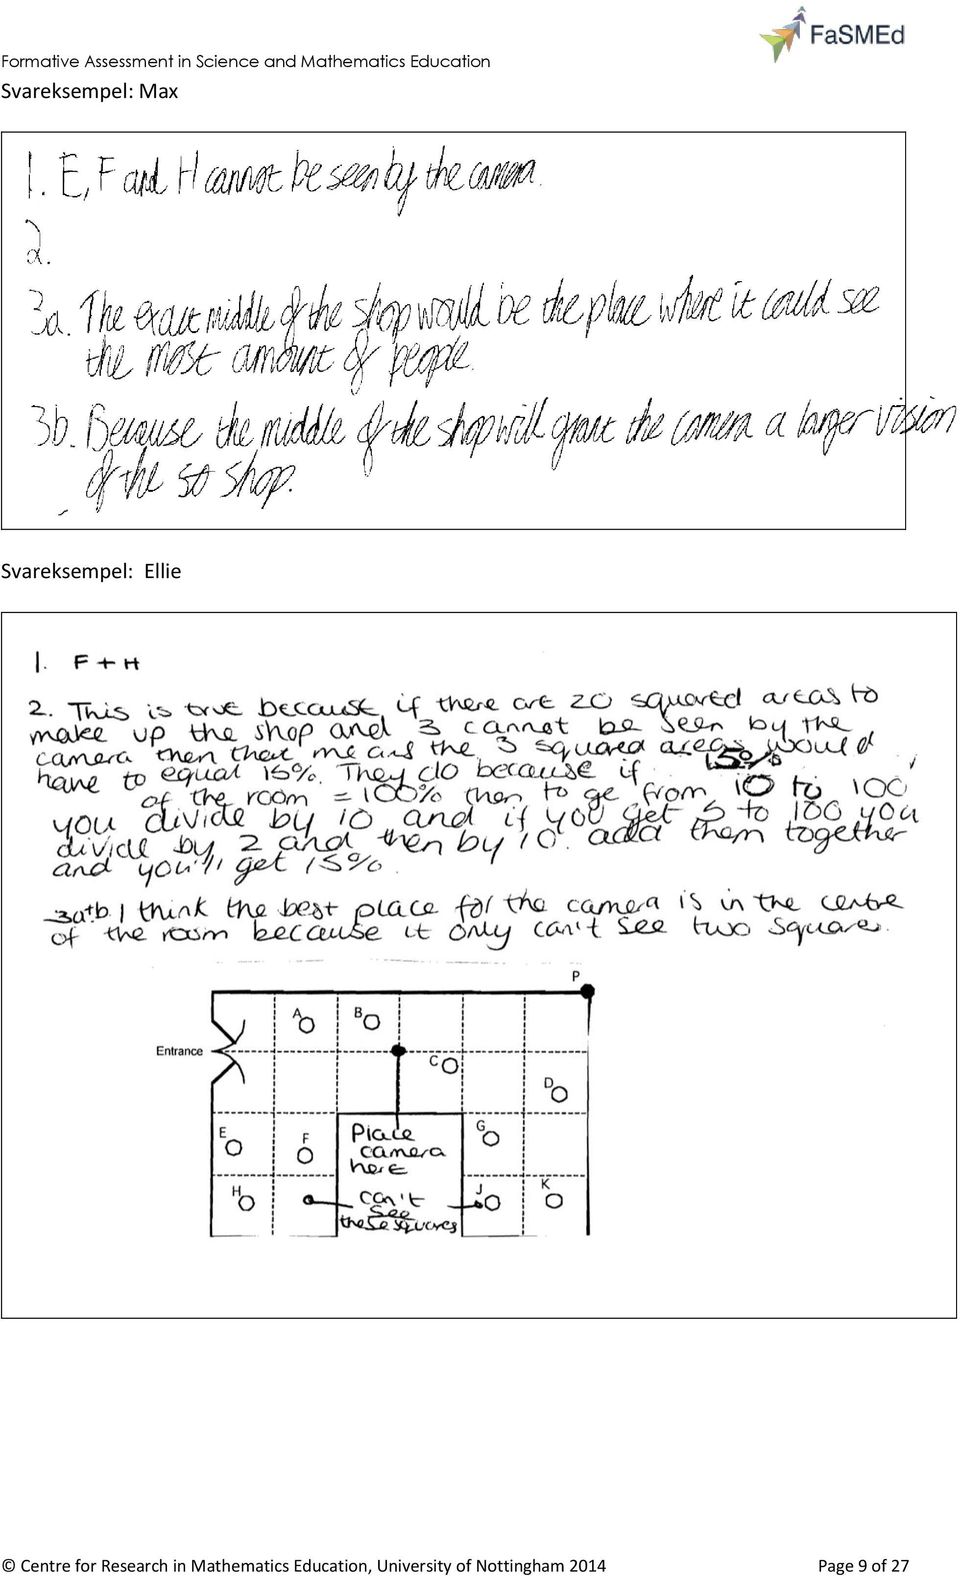 FaSMEd
Formative Assessment in Science and Mathematics Education
Svareksempel: Max
1. E, F and H cannot be seen by the camera.
2.
3a. The exact middle of the shop would be the place where it could see
the most amount of people.
3b. Because the middle of the shop will grant the camera a larger vision
of the so shop.
Svareksempel: Ellie
1. F + H
2. This is true because if there are 20 squared areas to
make up the shop and 3 cannot be seen by the
camera then that means the 3 squared areas would
have to equal 15%. They do because if 15%
of the room = 100% then to ge from 10 to 100
you divide by 10 and if you get 5 to 100 you
divide by 2 and then by 10. add them together
and you'll get 15%.
3a+b. I think the best place for the camera is in the centre
of the room because it only can't see two squares.
P
A B
Entrance
C
D
E F Place G
camera
here
H can't J K
see
these squares
© Centre for Research in Mathematics Education, University of Nottingham 2014 Page 9 of 27